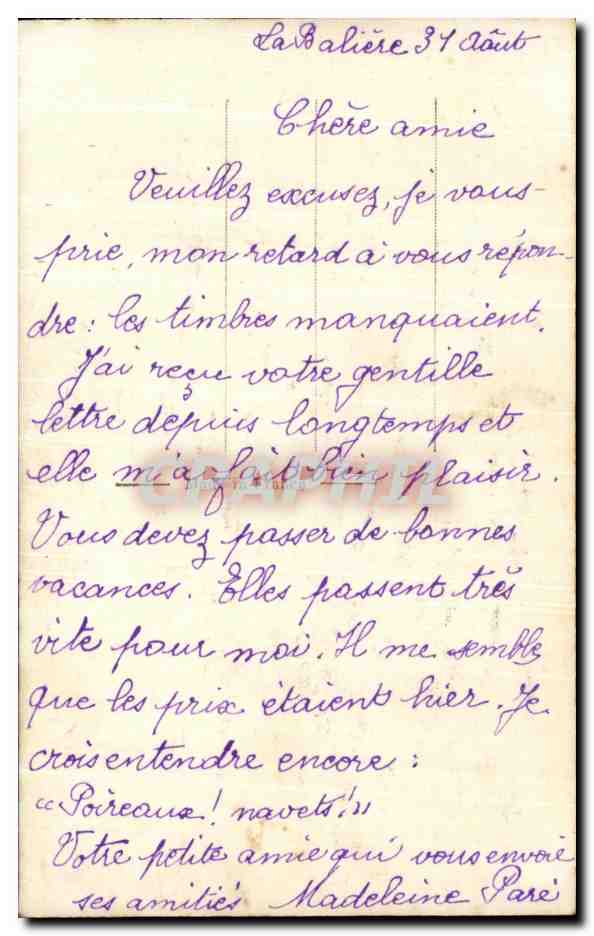 La Balière 31 Août
Chère amie
Veuillez excusez, je vous
prie, mon retard à vous répon-
dre : les timbres manquaient.
J'ai reçu votre gentille
lettre depuis longtemps et
elle m'a fait bien plaisir.
Vous devez passer de bonnes
vacances. Elles passent très
vite pour moi. Il me semble
que les prix étaient hier. Je
crois entendre encore :
"Poireaux ! navets !"
Votre petite amie qui vous envoie
ses amitiés Madeleine Paré